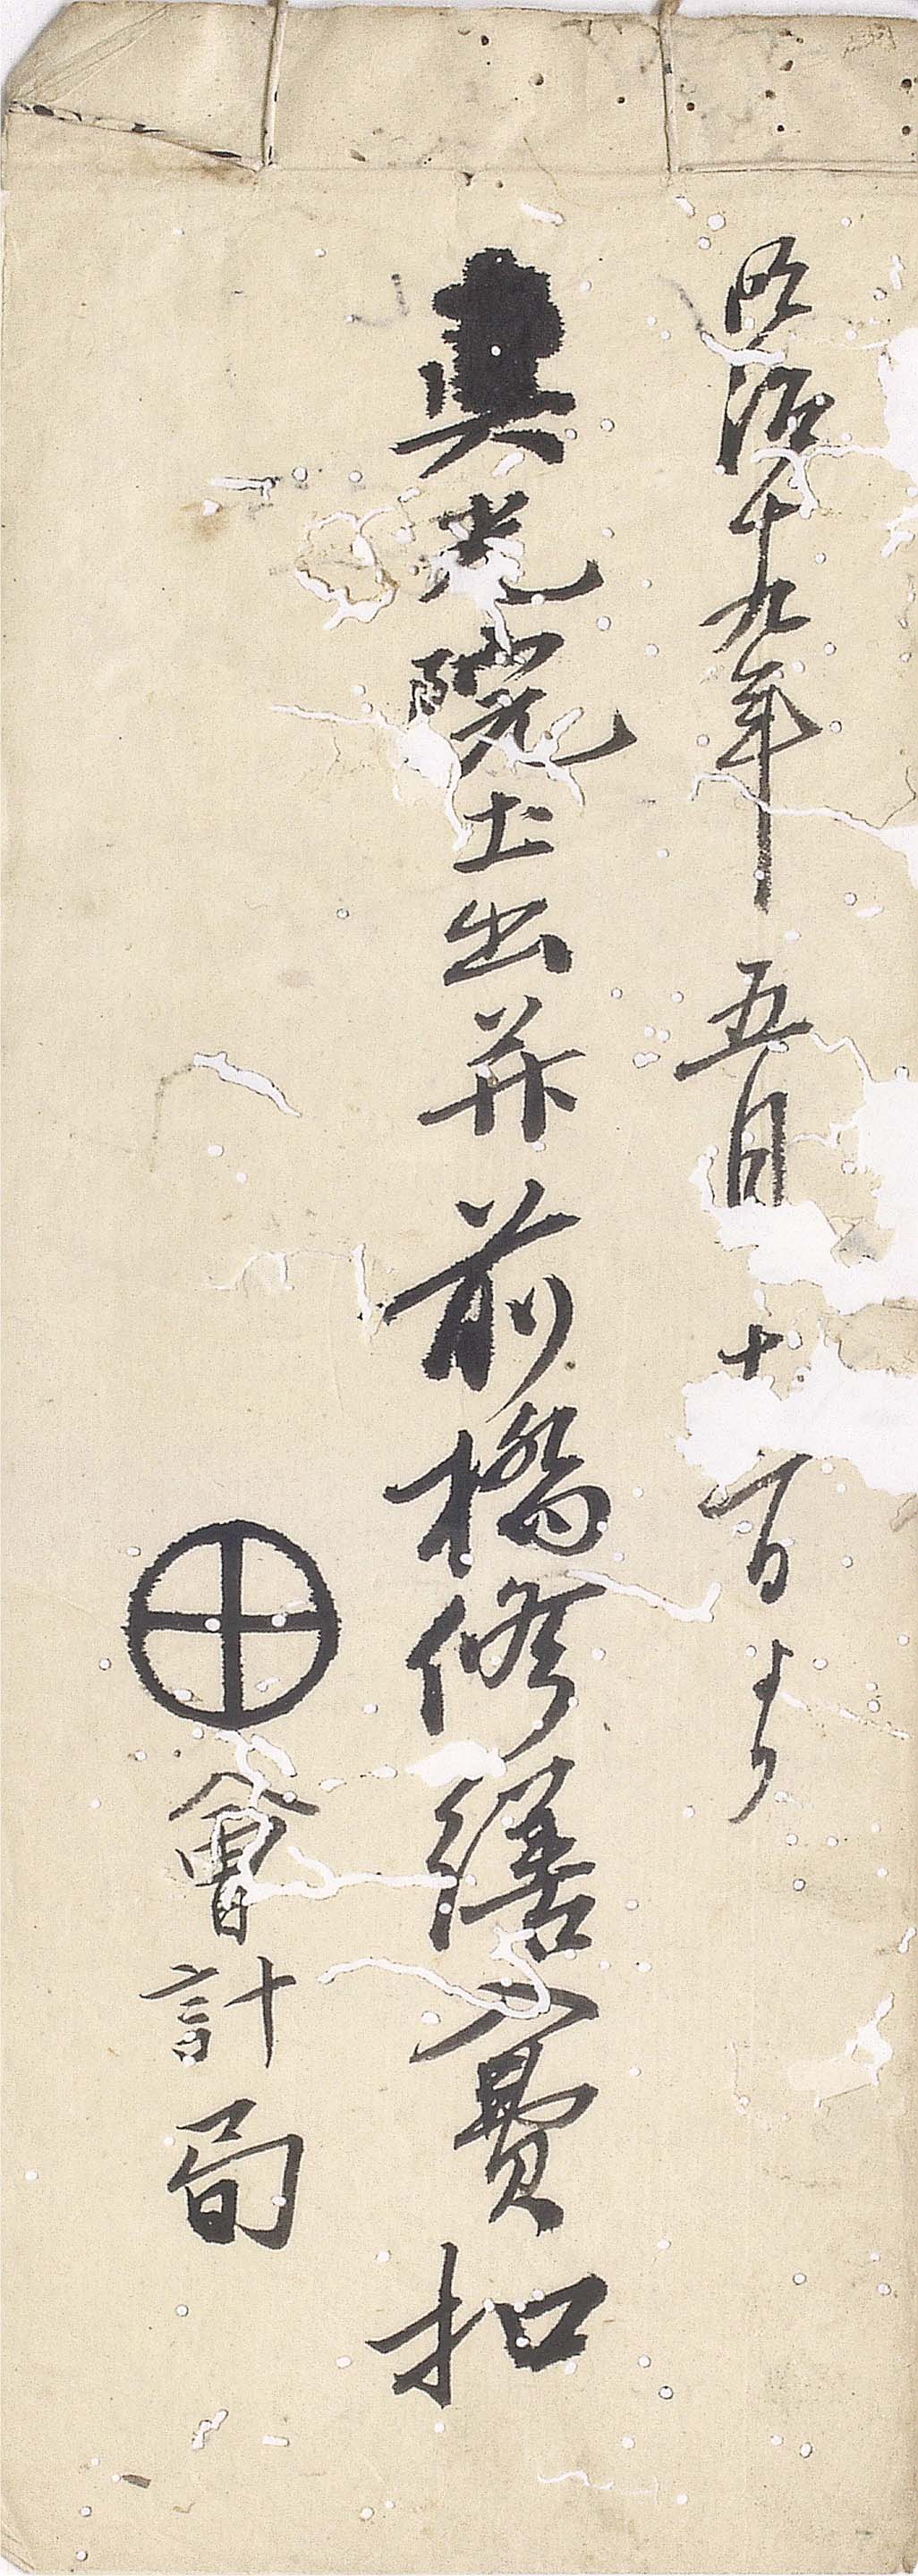 明治十九年五月十一日より
眞光院土出并前橋修繕入費扣
會計局